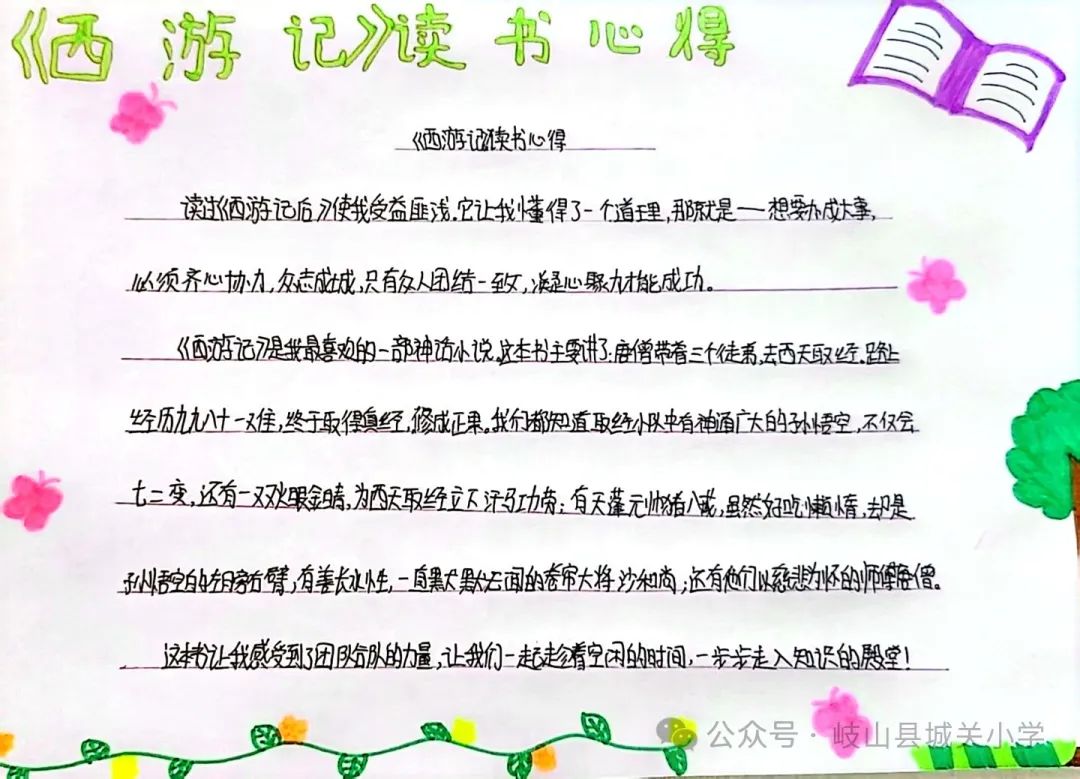 《西游记》读书心得
《西游记》读书心得
读过《西游记后》使我受益匪浅.它让我懂得了一个道理,那就是——想要办成大事,
必须齐心协力,众志成城,只有众人团结一致,凝心聚力才能成功。
《西游记》是我最喜欢的一部神话小说.这本书主要讲了:唐僧带着三个徒弟,去西天取经.路上
经历九九八十一难,终于取得真经,修成正果。我们都知道取经小队中有神通广大的孙悟空,不仅会
七十二变,还有一双火眼金睛,为西天取经立下汗马功劳;有天蓬元帅猪八戒,虽然好吃懒惰,却是
孙悟空的左膀右臂,有善长水性,一直默默无闻的卷帘大将沙和尚;还有他们以慈悲为怀的师傅唐僧。
这本书让我感受到了团队合队的力量,让我们一起趁着空闲的时间,一步步走入知识的殿堂!
公众号·岐山县城关小学